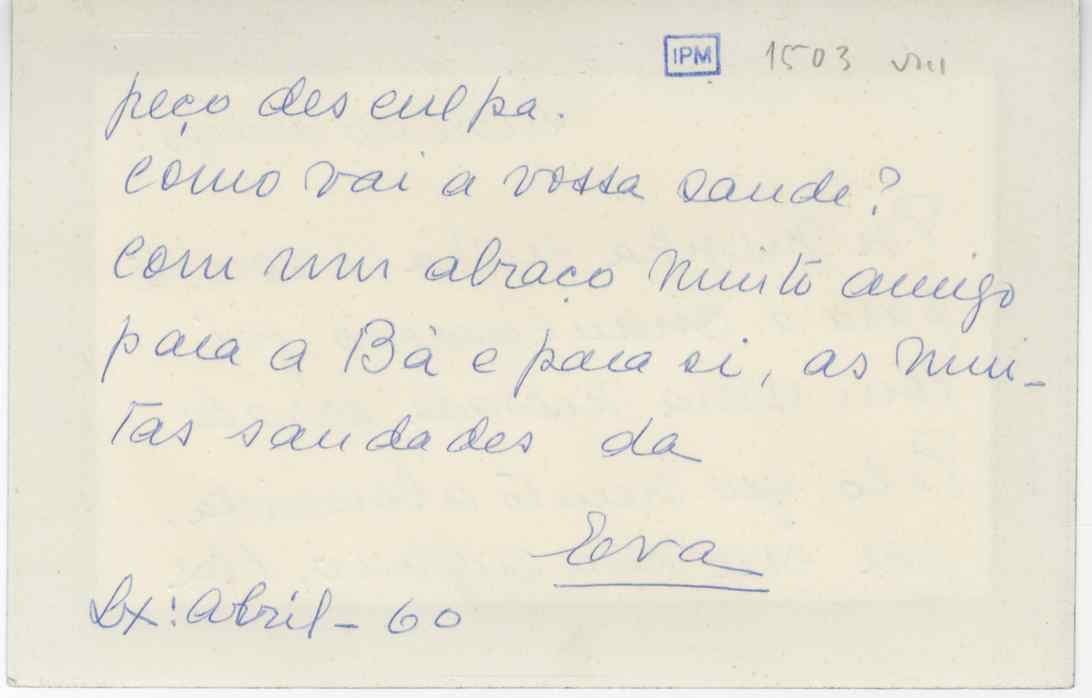 IPM 1503 VIII
peço desculpa.
Como vai a vossa saude?
Com um abraço muito amigo
para a Bá e para si, as mui-
tas saudades da
Eva
Lx: Abril - 60